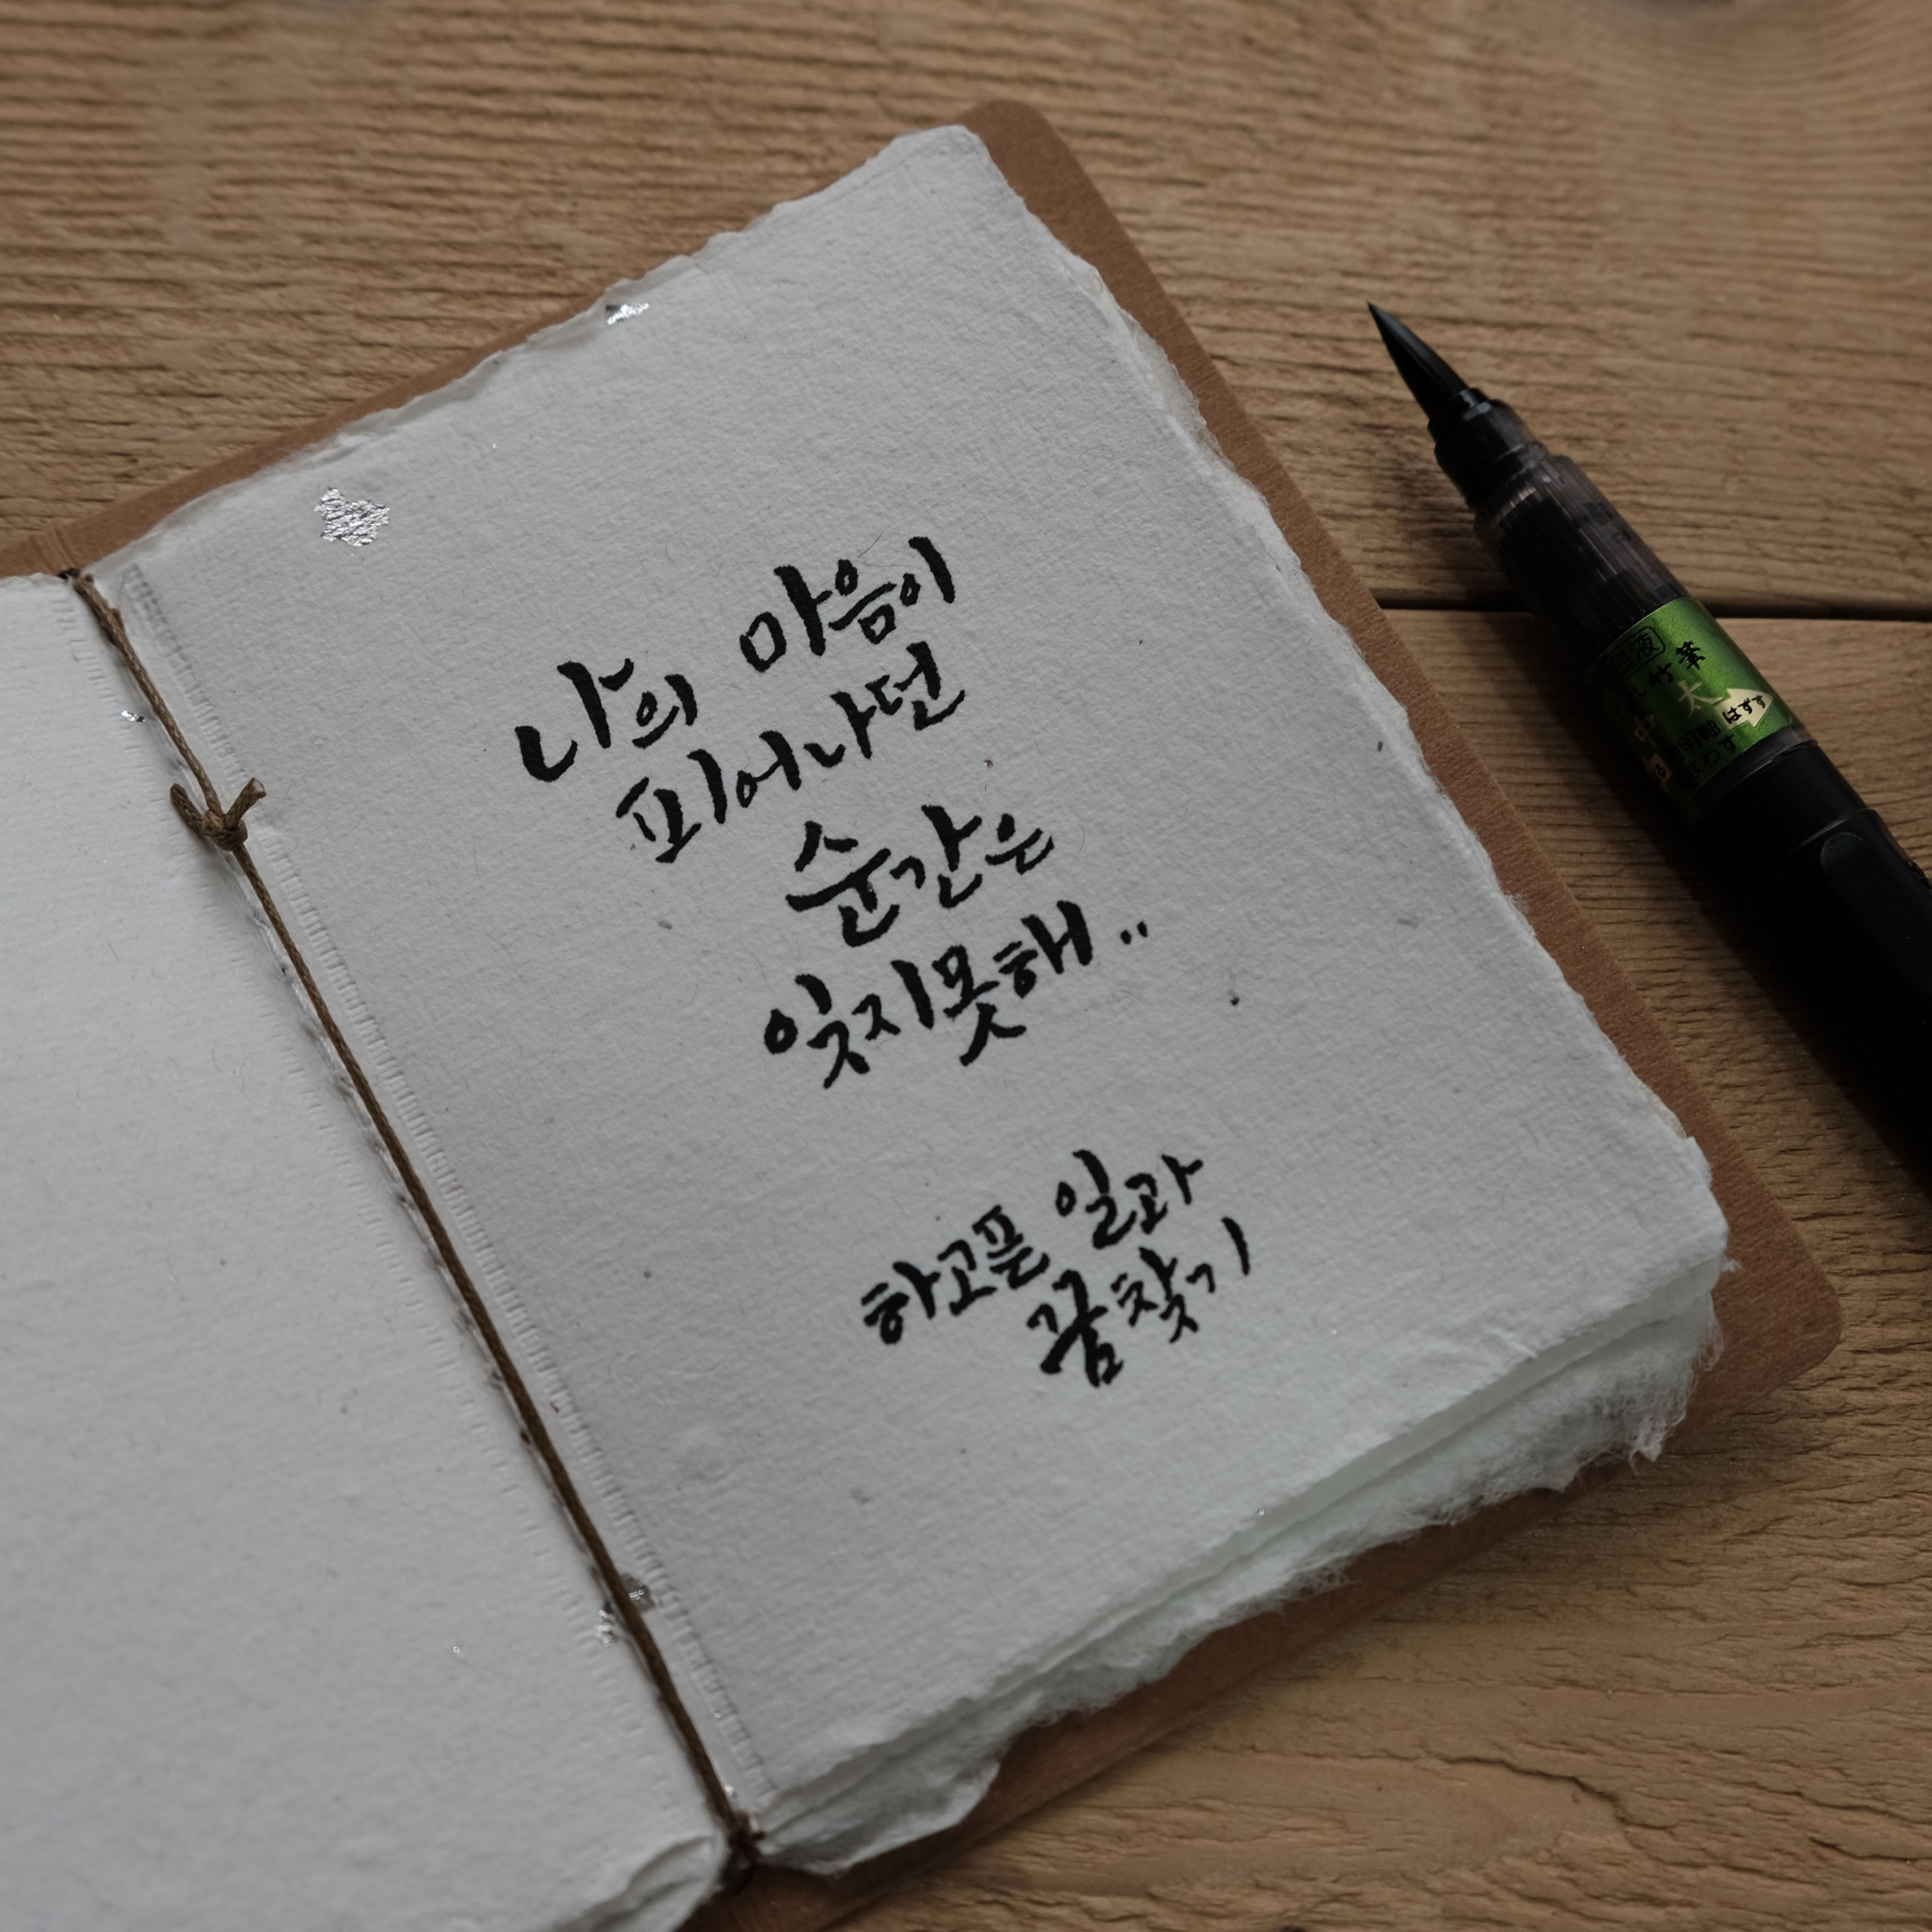 나의 마음이
피어나던
순간은
잊지못해..
하고픈 일과
꿈찾기
竹筆
中 太
はずす
まわす